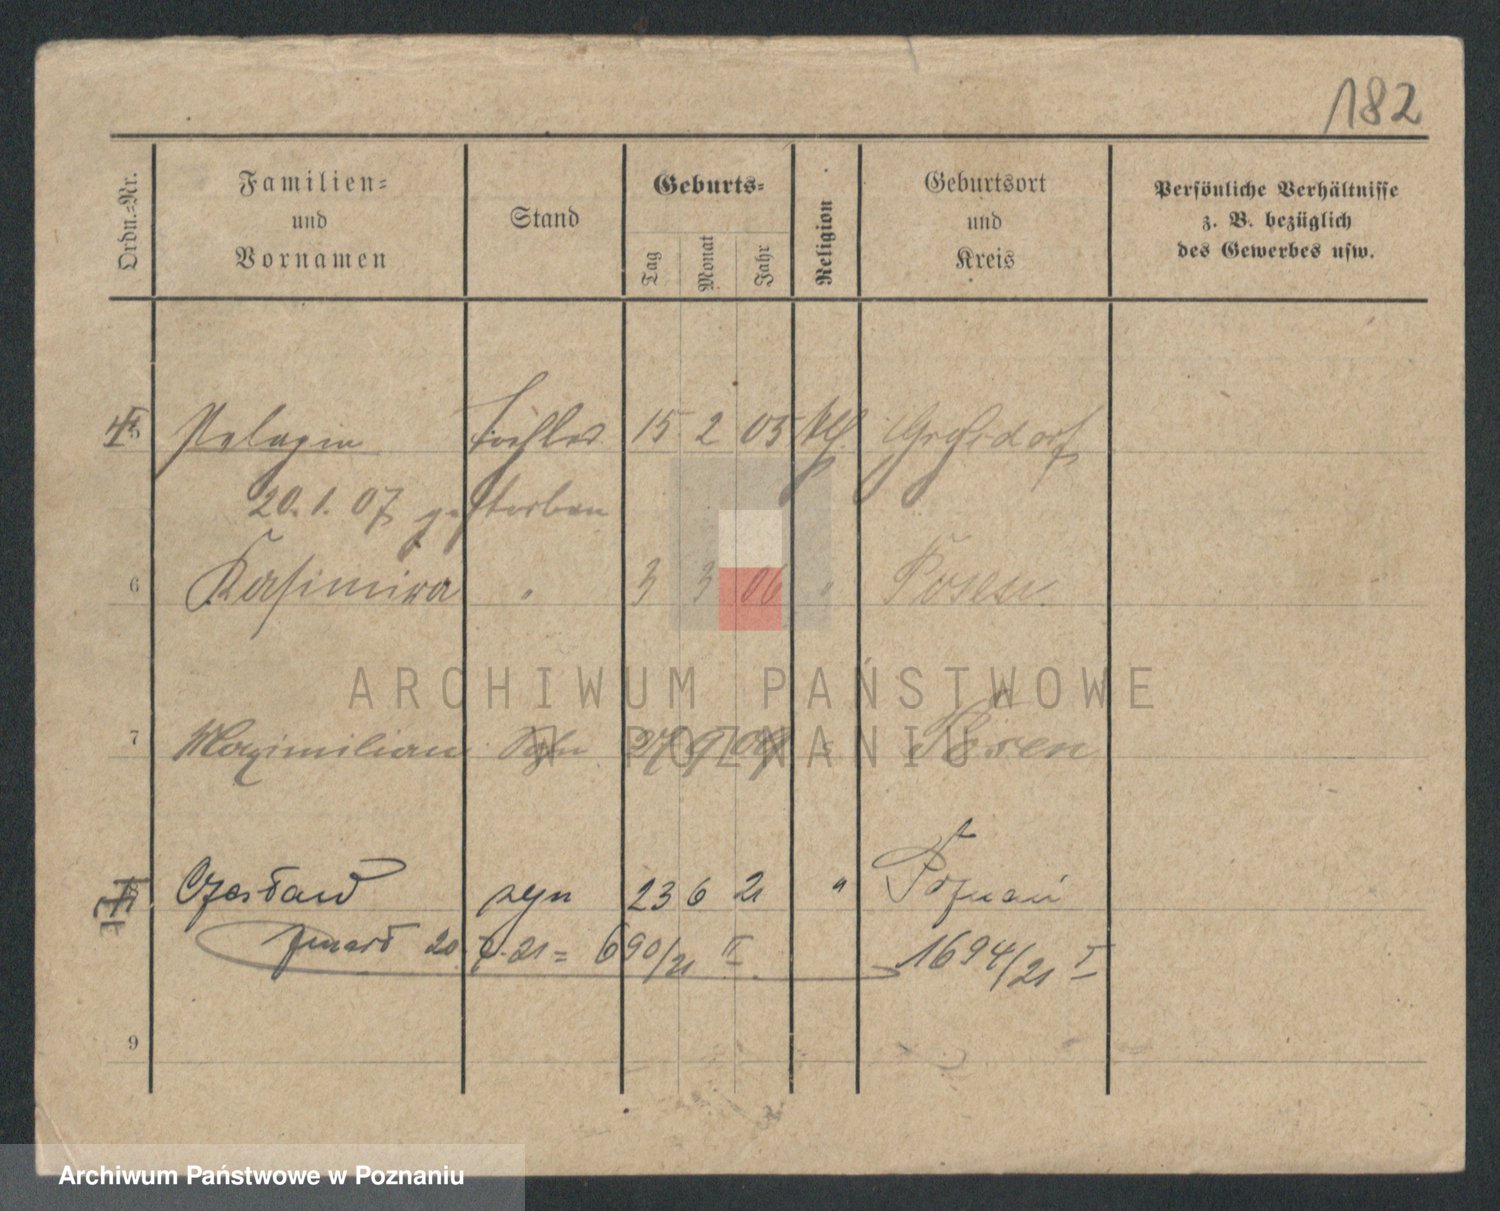 182
Ordn.-Nr.
Familien-
und
Vornamen
Stand
Geburts-
Tag
Monat
Jahr
Religion
Geburtsort
und
Kreis
Persönliche Verhältnisse
z. B. bezüglich
des Gewerbes usw.
5 Pelagia Tochter 15 2 05 kth.
20.1.07 gestorben
6 Kasimira " 3 3 06 " Posen
7 Maximilian Sohn 27 9 09 " Posen
Czesław syn 23 6 21 " Poznań
zmarł 20.7.21 = 690/21 II 1694/21 I
9
ARCHIWUM PAŃSTWOWE
W POZNANIU
Archiwum Państwowe w Poznaniu